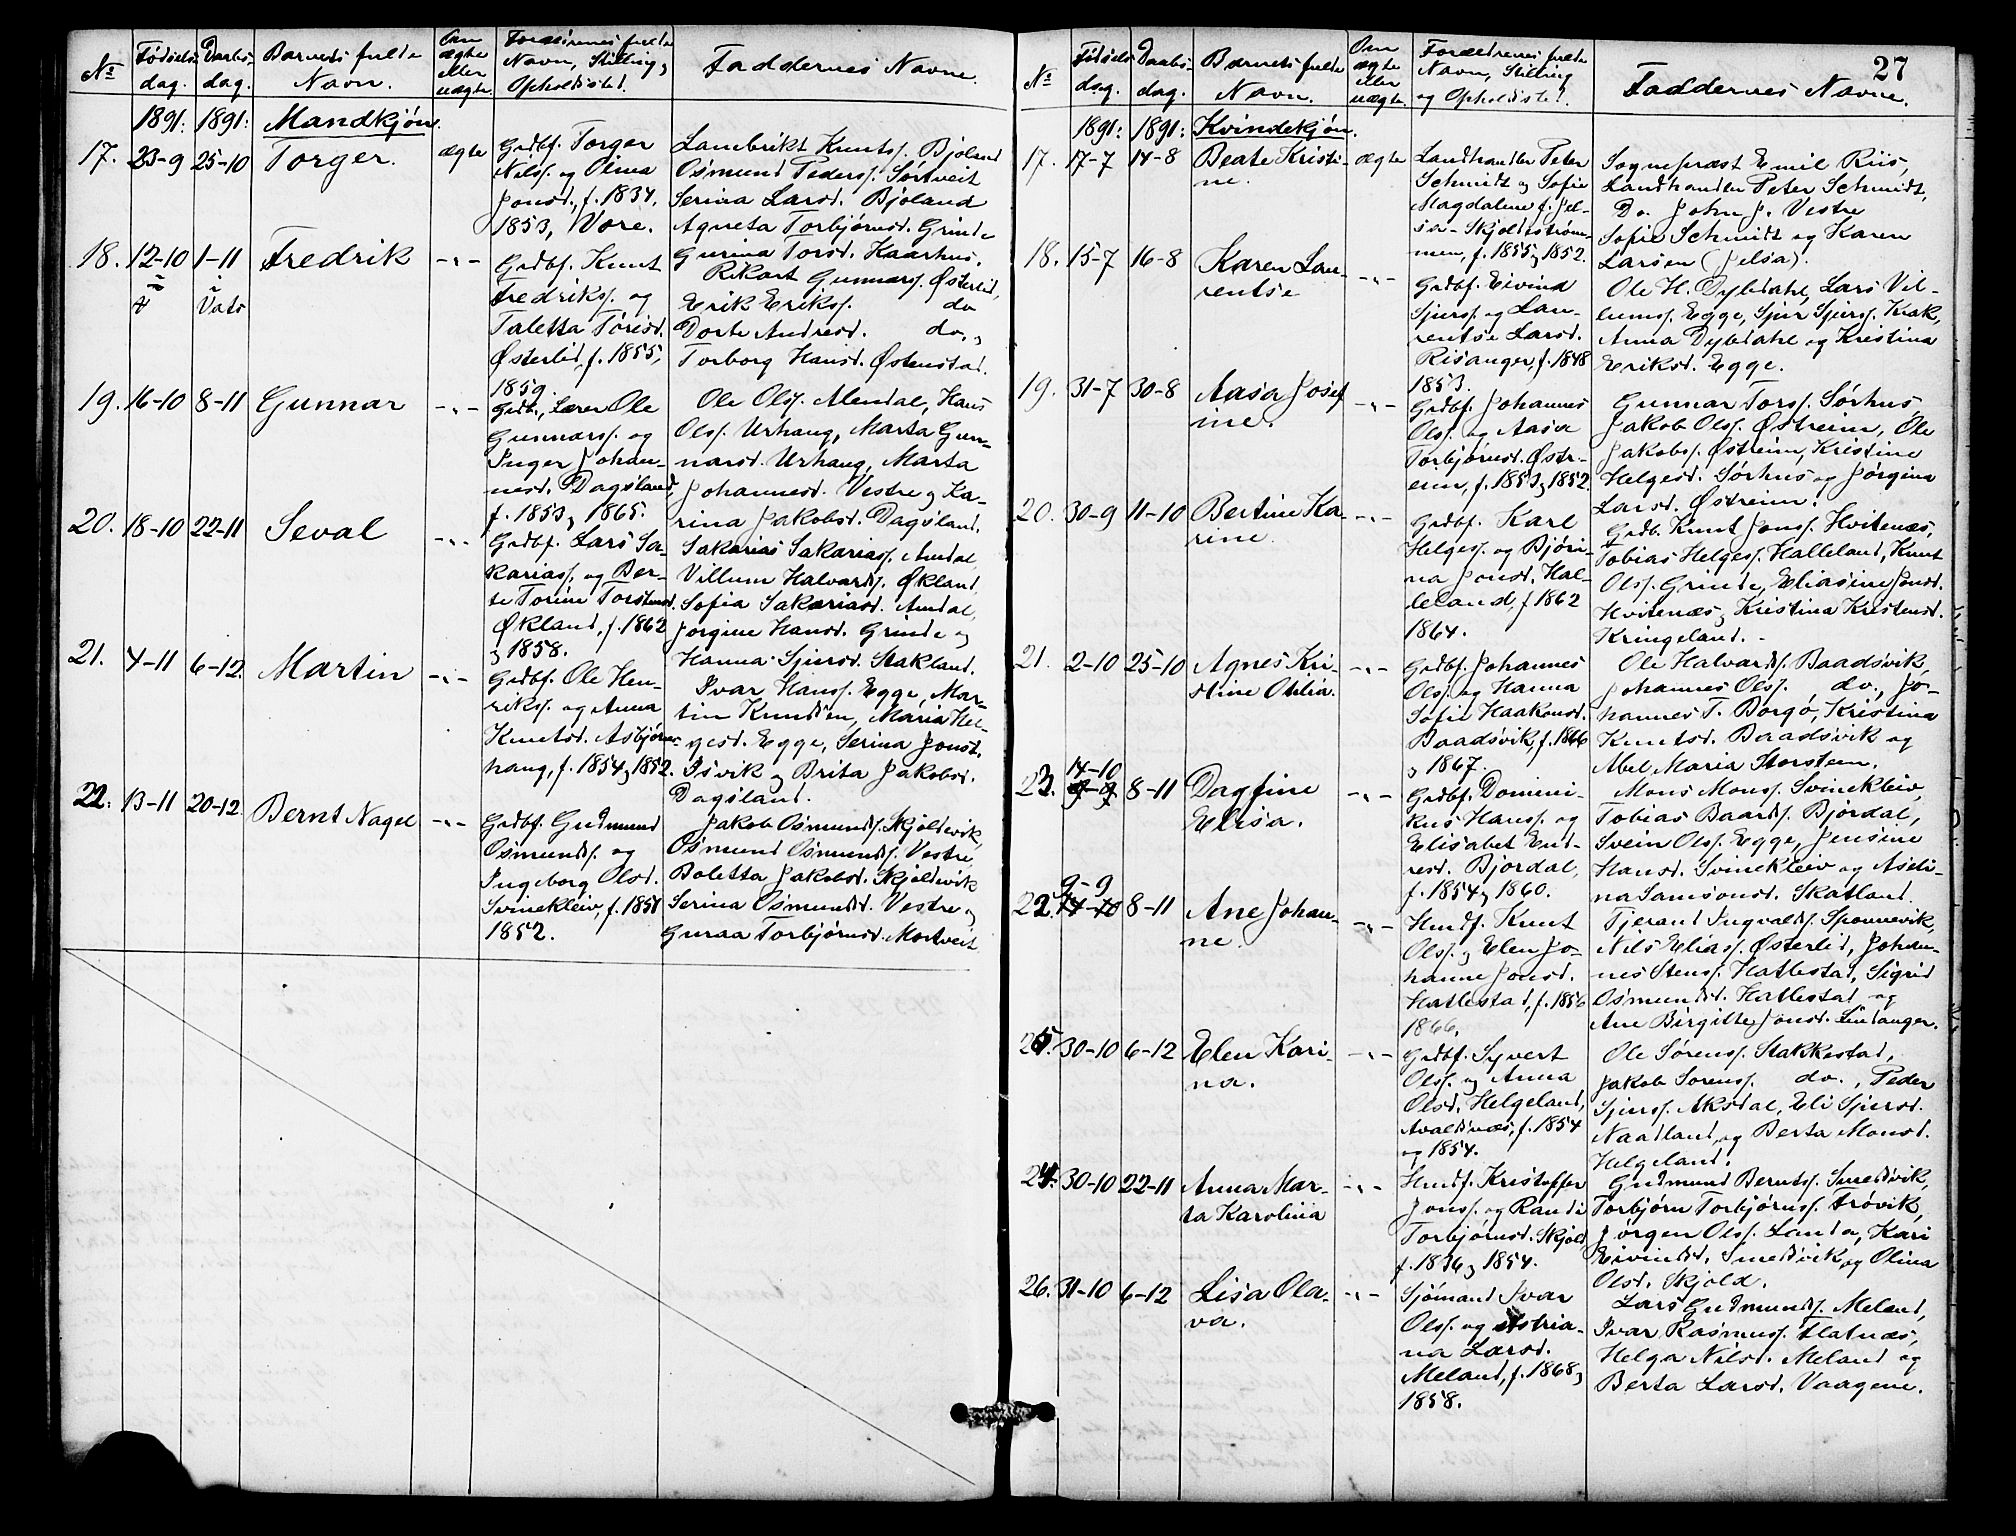 No
Fødsels-
dag.
Daabs-
dag.
Barnets fulde
Navn.
Om
ægte
eller
uægte
Forældrenes fulde
Navn, Stilling,
Opholdssted.
Faddernes Navne.
1891: 1891: Mandkjøn.
17. 23-9 25-10 Torger. ægte
Grdbf. Torger
Nilss. og Olina
Jonsd., f. 1834,
1853, Vore.
Lambrikt Knuts. Bjoland
Osmund Peders. Sørtveit
Serina Larsd. Bjoland
Agneta Torbjørnsd. Grinde
Gurina Torsd. Kaarhus.
18. 12-10 1-11 Fredrik -"-
i
Vats
Grdbf. Knut
Fredriks. og
Taletta Torisd.
Østerlid, f. 1855,
1859.
Rikart Gunnars. Østerlid,
Erik Eriks. do
Dorte Andresd. do.,
Torborg Hansd. Østenstad.
19. 16-10 8-11 Gunnar -"-
Grdb., Lærer Ole
Gunnars. og
Inger Johan-
nesd. Dagsland,
f. 1853, 1865.
Ole Ols. Alendal, Hans
Ols. Urhaug, Marta Gun-
narsd. Urhaug, Marta
Johannesd. Vestre og Ka-
rina Jakobsd. Dagsland.
20. 18-10 22-11 Seval -"-
Grdbf. Lars Sa-
karias. og Ber-
te Torine Torstensd.
Økland, f. 1862
og 1858.
Sakarias Sakarias. Amdal,
Villum Halvards. Økland
Sofia Sakariasd. Amdal,
Jorgine Hansd. Grinde og
Hanna Sjursd. Stakland.
21. 4-11 6-12. Martin -"-
Grdbf. Ole Hen-
riks. og Anna
Knutsd. Asbjørns-
haug, f. 1854 og 1852.
Ivar Hans. Egge, Mar-
tin Knudsen, Maria Hel-
gesd. Egge, Serina Jonsd.
Isvik og Brita Jakobsd.
Dagsland.
22. 13-11 20-12. Bernt Nagel -"-
Grdbf. Gudmund
Osmunds. og
Ingeborg Olsd.
Svinekleiv, f. 1851
1852.
Jakob Osmunds. Skjoldevik,
Osmund Osmunds. Vestre,
Boletta Jakobsd. Skjoldevik
Serina Osmundsd. Vestre og
Guraa Torbjørnsd. Mortveit
27
No
Fødsels-
dag.
Daabs-
dag.
Barnets fulde
Navn.
Om
ægte
eller
uægte.
Forældrenes fulde
Navn, Stilling
og Opholdssted.
Faddernes Navne.
1891: 1891: Kvindekjøn.
17. 17-7 14-8 Beate Kristi-
ne. ægte
Landhandler Peter
Schmidt og Sofie
Magdalene f. Jel-
sa - Skjoldestrøm-
men, f. 1855 og 1852.
Sognepræst Emil Riis,
Landhandler Peter Schmidt,
Do. John J. Vestre
Sofie Schmidt og Karen
Larsen (Jelsa).
18. 15-7 16-8 Karen Lau-
rentse -"-
Grdbf. Eivind
Sjurs. og Lau-
rentse Larsd.
Risanger, f. 1848
1853.
Ole H. Dybdahl, Lars Vil-
lums. Egge, Sjur Sjurs. Krak,
Anna Dybdahl og Kristina
Eriksd. Egge.
19. 31-7 30-8 Aasa Josef
ine. -"-
Grdbf. Johannes
Ols. og Aasa
Torbjørnsd. Østr-
eim, f. 1853 og 1852.
Gunnar Tors. Sørhus
Jakob Ols. Østreim, Ole
Jakobs. Østreim, Kristine
Helgesd. Sørhus og Jørgina
Larsd. Østreim.
20. 30-9 11-10 Bertine Ka-
rine. -"-
Grdbf. Karl
Helges. og Bjøri-
na Jonsd. Hal-
leland, f 1862
1864.
Grdb. Knut Jons. Hvitenæs,
Tobias Helges. Halleland, Knut
Ols. Grinde, Eliasine Jonsd.
Hvitenæs, Kristina Kristensd.
Kringeland.
21. 2-10 25-10 Agnes Kri-
stine Otilia. -"-
Grdbf. Johannes
Ols. og Hanna
Sofie Haakonsd.
Baadsvik, f. 1866
og 1867.
Ole Halvards. Baadsvik,
Johannes Ols. do., Jo-
hannes T. Borgo, Kristina
Knutsd. Baadsvik og
Abel Maria Storsteen.
23. 14-10 8-11 Dagfine
Elisa. -"-
Grdbf. Domini-
kus Hans. og
Elisabet End-
resd. Bjordal,
f. 1854 og 1860.
Mons Mons. Svinekleiv,
Tobias Baards. Bjordal,
Svein Ols. Egge, Jensine
Hansd. Svinekleiv og Aseli-
na Samsonsd. Skatland.
22. 9-9 14-10 8-11 Ane Johan-
ne. -"-
Husmf. Knut
Ols. og Elen Jo-
hanne Jonsd.
Hatlestad, f. 1856
1866.
Tjerand Ingvalds. Sponnevik,
Nils Elias. Østerlid, Johan-
nes Stens. Hatlestad, Sigrid
Osmundsd. Hatlestad og
Ane Birgitte Jonsd. Lindanger.
25. 30-10 6-12 Elen Kari-
na. -"-
Grdbf. Syvert
Ols. og Anna
Olsd. Helgeland,
Avaldsnæs, f. 1854
og 1854.
Ole Sørens. Stakkestad,
Jakob Sorens. do., Peder
Sjurs. Aksdal, Eli Sjursd.
Naadland, og Berta Monsd.
Helgeland.
24. 30-10 22-11 Anna Mar-
ta Karolina -"-
Husmf. Kristoffer
Jons. og Randi
Torbjørnsd. Skjold
f. 1836 og 1854.
Gudmund Bernts. Smedsvik,
Torbjørn Torbjørns. Frøvik,
Jørgen Ols. Landa, Kari
Eivindsd. Smedsvik og Olina
Olsd. Skjold.
26. 31-10 6-12 Lisa Ola-
va. -"-
Sjømand Ivar
Ols. og Astria-
na Larsd.
Meland, f. 1868 og
1858.
Lars Gudmunds. Meland,
Ivar Rasmus. Flatnæs,
Helga Nilsd. Meland og
Berta Larsd. Vaagene.